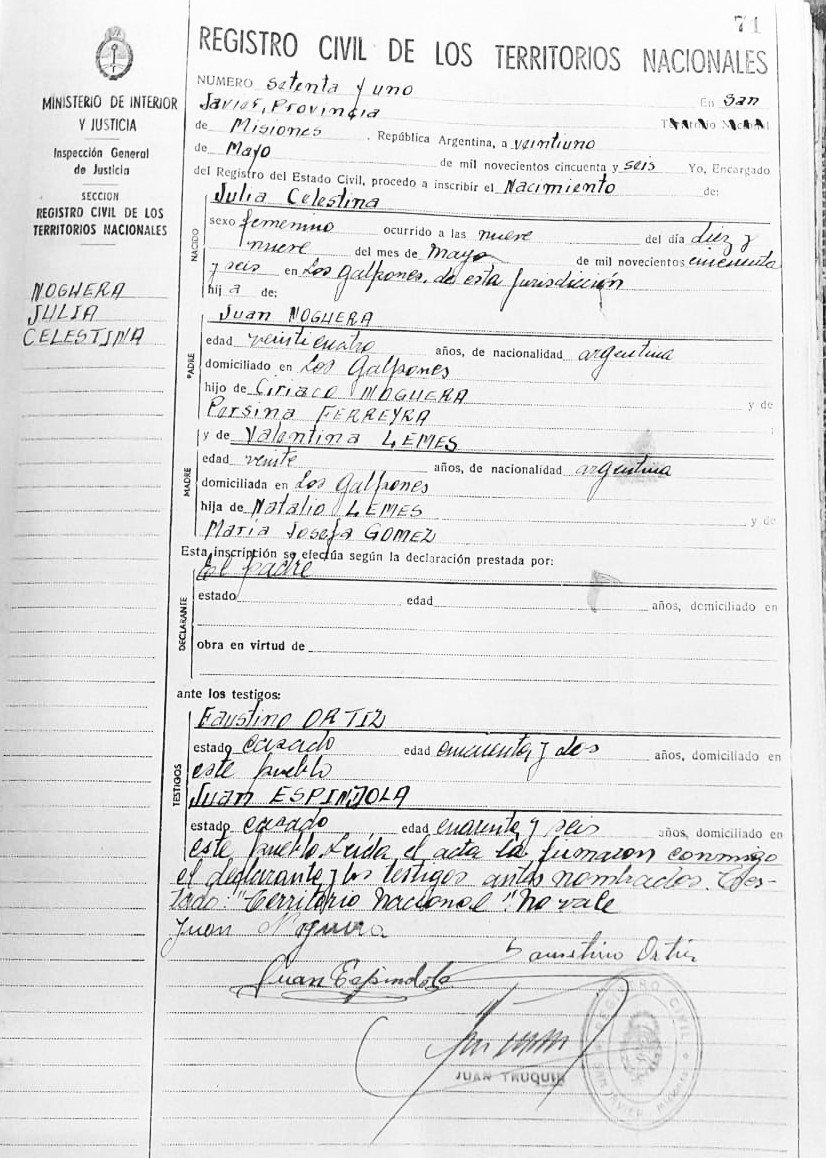 71
REGISTRO CIVIL DE LOS TERRITORIOS NACIONALES
MINISTERIO DE INTERIOR
Y JUSTICIA
Inspección General
de Justicia
SECCION
REGISTRO CIVIL DE LOS
TERRITORIOS NACIONALES
NOGUERA
JULIA
CELESTINA
NUMERO setenta y uno En San
Javier, Provincia Territorio Nacional
de Misiones, República Argentina, a veintiuno
de Mayo de mil novecientos cincuenta y seis Yo, Encargado
del Registro del Estado Civil, procedo a inscribir el Nacimiento de:
NACIDO
Julia Celestina
sexo femenino ocurrido a las nueve del día diez y
nueve del mes de Mayo de mil novecientos cincuenta
y seis en Los Galpones, de esta Jurisdicción
hij a de:
PADRE
Juan NOGUERA
edad veinticuatro años, de nacionalidad argentina
domiciliado en Los Galpones
hijo de Ciriaco NOGUERA y de
Porsina FERREYRA
MADRE
y de Valentina LEMES
edad veinte años, de nacionalidad argentina
domiciliada en Los Galpones
hija de Natalio LEMES y de
María Josefa GOMEZ
Esta inscripción se efectúa según la declaración prestada por:
DECLARANTE
El padre
estado edad años, domiciliado en
obra en virtud de
ante los testigos:
TESTIGOS
Faustino ORTIZ
estado casado edad cincuenta y dos años, domiciliado en
este pueblo
Juan ESPINDOLA
estado casado edad cuarenta y seis años, domiciliado en
este pueblo. Leída el acta la firmaron conmigo
el declarante y los testigos antes nombrados. Tes-
tado: "Territorio Nacional": No vale
Juan Noguera
Faustino Ortiz
Juan Espindola
JUAN TRUQUIN
REGISTRO CIVIL
SAN JAVIER MISIONES